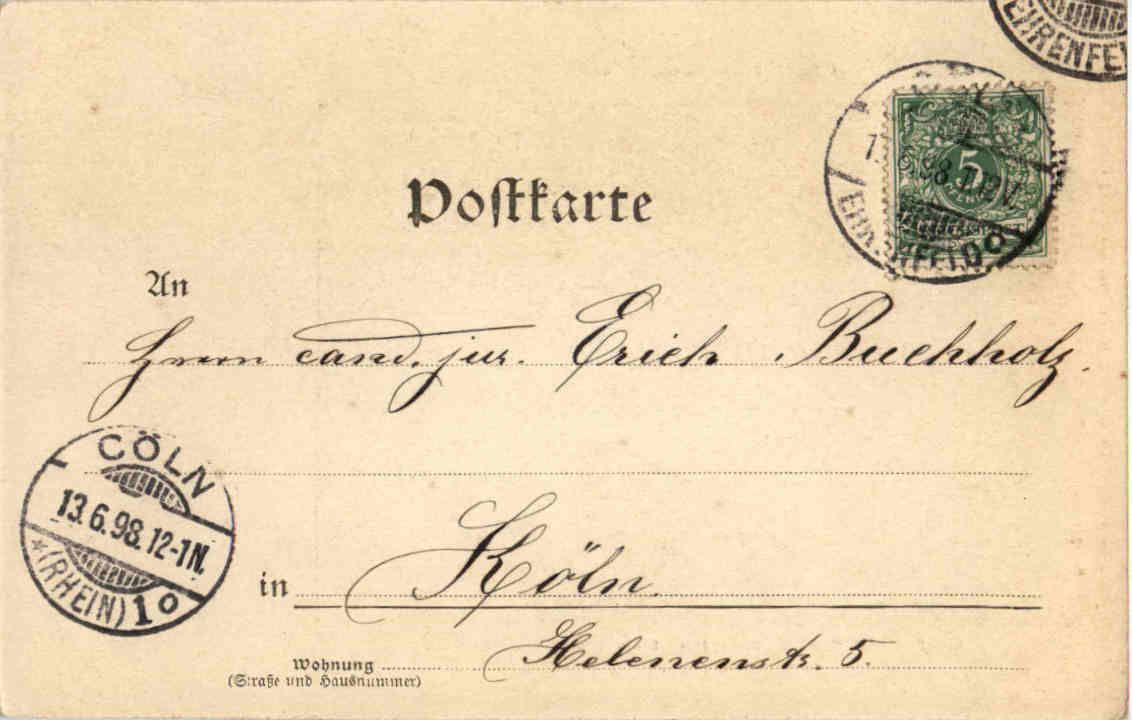 EHRENFE
13.6.98.
5
EHRENFELD
Postkarte
An
Herrn cand. jur. Erich Buchholz.
CÖLN
13.6.98.12-1N.
*(RHEIN) 1 o
in Köln.
Helenenstr. 5.
Wohnung
(Straße und Hausnummer)